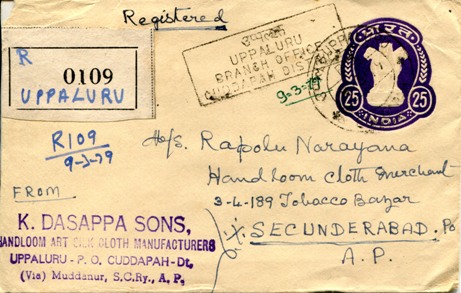 Registered
R
0109
UPPALURU
UPPALURU
BRANCH OFFICE
CUDDAPAH DIST
9-3-79
भारत
25 25
INDIA
R109
9-3-79
FROM
K. DASAPPA SONS,
HANDLOOM ART SILK CLOTH MANUFACTURERS
UPPALURU - P. O. CUDDAPAH-Dt,
(Via) Muddanur, S.C.Ry., A. P.
M/s. Rapolu Narayana
Handloom Cloth Merchant
3-4-189 Tobacco Bazar
SECUNDERABAD. Po
A.P.